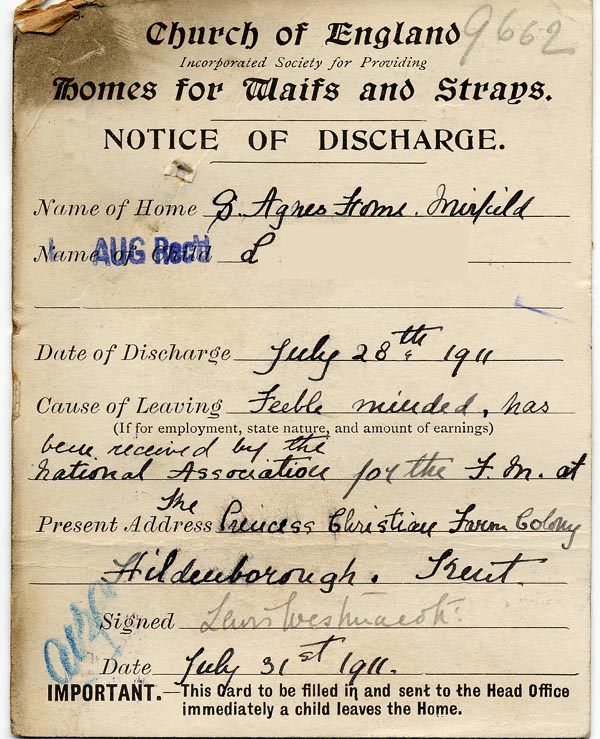 Church of England 9662
Incorporated Society for Providing
Homes for Waifs and Strays.
NOTICE OF DISCHARGE.
Name of Home S. Agnes Home. Mirfield
Name of Child L
AUG Recd
Date of Discharge July 28th 1911
Cause of Leaving Feeble minded, has
(If for employment, state nature, and amount of earnings)
been received by the
National Association for the F. M. at
The
Present Address Princess Christian Farm Colony
Hildenborough. Kent.
Signed Lewis Westmacott.
Date July 31st 1911.
IMPORTANT.—This Card to be filled in and sent to the Head Office
immediately a child leaves the Home.